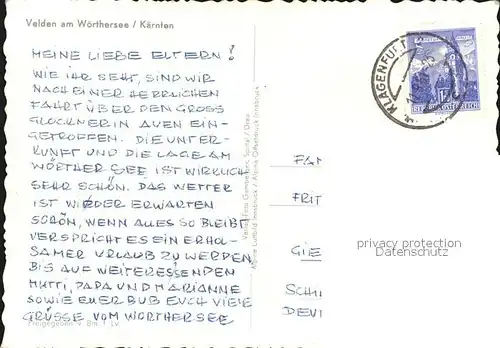 Velden am Wörthersee / Kärnten
MEINE LIEBE ELTERN!
WIE IHR SEHT, SIND WIR
NACH EINER HERRLICHEN
FAHRT ÜBER DEN GROSS
GLOCKNER IN AUEN EIN-
GETROFFEN. DIE UNTER-
KUNFT UND DIE LAGE AM
WÖRTHER SEE IST WIRKLICH
SEHR SCHÖN. DAS WETTER
IST WIDER ERWARTEN
SCHÖN, WENN ALLES SO BLEIBT
VERSPRICHT ES EIN ERHOL-
SAMER URLAUB ZU WERDEN.
BIS AUF WEITERES SENDEN
MUTTI, PAPA UND MARIANNE
SOWIE EUER BUB EUCH VIELE
GRÜSSE VOM WÖRTHERSEE
Freigegeben v. Bm. f. Lv.
Alpine Luftbild Innsbruck / Alpina Offsetdruck Innsbruck
KLAGENFURT
FAM
FRIT
GIE
SCHI
DEUT
privacy protection
Datenschutz